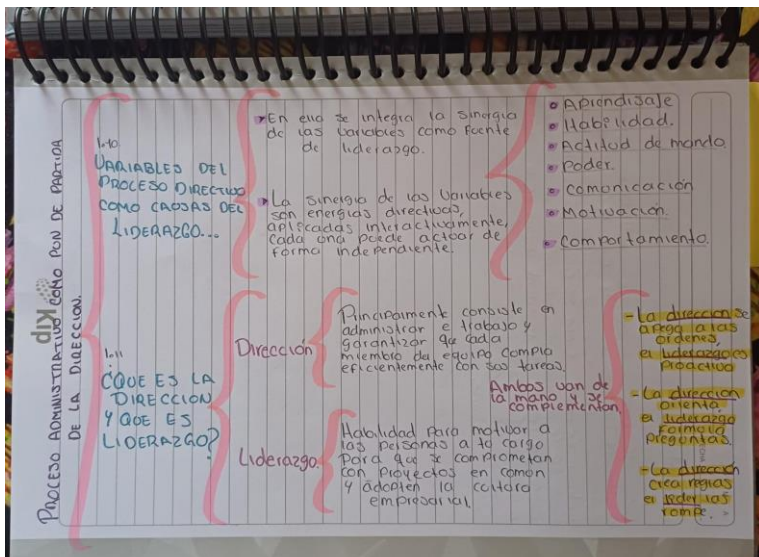 PROCESO ADMINISTRATIVO COMO PON DE PARTIDA
DE LA DIRECCION.
Kip
1.10
VARIABLES DEL
PROCESO DIRECTIVO
COMO CAUSAS DEL
LIDERAZGO...
En ella se integra la sinergia
de las variables como fuente
de liderazgo.
La sinergia de las variables
son energias directivas,
aplicadas interactivamente,
cada una puede actuar de
forma independiente.
Aprendisaje
Habilidad.
Actitud de mando
Poder.
comunicación
Motivación.
Comportamiento.
1.11
¿QUE ES LA
DIRECCION
Y QUE ES
LIDERAZGO?
Dirección
Principalmente consiste en
administrar e trabajo y
garantizar que cada
miembro de equipo cumpla
eficientemente con sus tareas.
Liderazgo.
Habilidad para motivar a
las personas a tu cargo
para que se comprometan
con proyectos en común
y adopten la cultura
empresarial.
Ambos van de
la mano y se
complementan.
- La dirección se
apega a las
ordenes,
el liderazgo es
proactivo
- La dirección
orienta
el liderazgo
formula
preguntas.
- La dirección
crea reglas
el lider las
rompe.